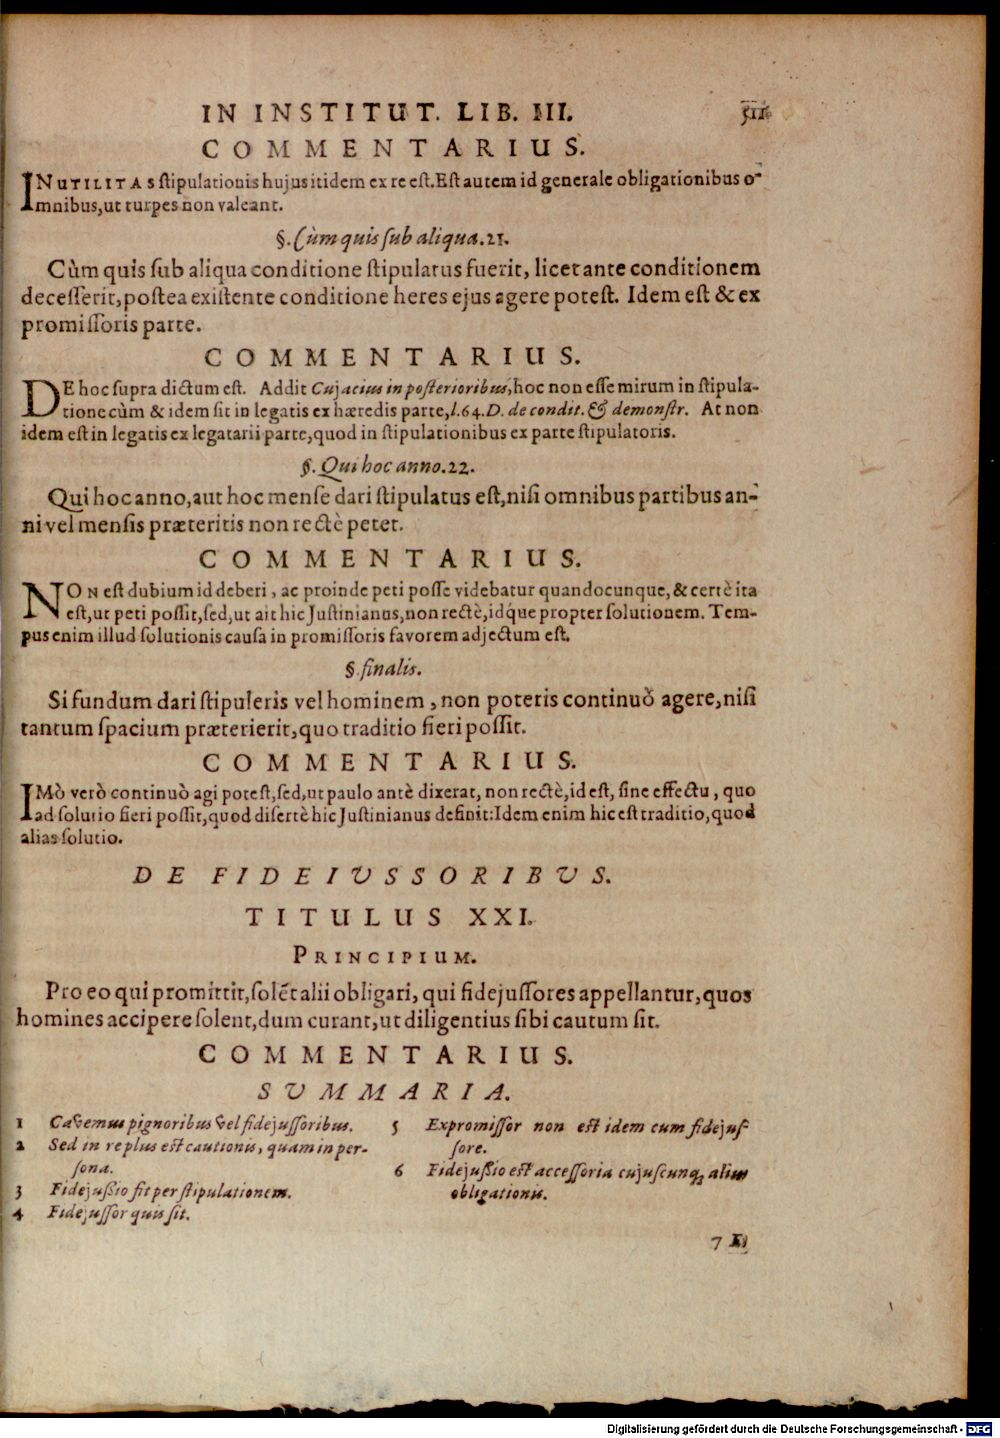 IN INSTITUT. LIB. III. 511
COMMENTARIUS.
INUTILITAS stipulationis hujus itidem ex re est. Est autem id generale obligationibus o-
mnibus, ut turpes non valeant.
§. Cùm quis sub aliqua. 21.
Cùm quis sub aliqua conditione stipulatus fuerit, licet ante conditionem
decesserit, postea existente conditione heres ejus agere potest. Idem est & ex
promissoris parte.
COMMENTARIUS.
DE hoc supra dictum est. Addit Cujacius in posterioribus, hoc non esse mirum in stipula-
tione cùm & idem sit in legatis ex hæredis parte, l. 64. D. de condit. & demonstr. At non
idem est in legatis ex legatarii parte, quod in stipulationibus ex parte stipulatoris.
§. Qui hoc anno. 22.
Qui hoc anno, aut hoc mense dari stipulatus est, nisi omnibus partibus an-
ni vel mensis præteritis non rectè petet.
COMMENTARIUS.
NON est dubium id deberi, ac proinde peti posse videbatur quandocunque, & certè ita
est, ut peti possit, sed, ut ait hic Justinianus, non rectè, idque propter solutionem. Tem-
pus enim illud solutionis causa in promissoris favorem adjectum est.
§. finalis.
Si fundum dari stipuleris vel hominem, non poteris continuò agere, nisi
tantum spacium præterierit, quo traditio fieri possit.
COMMENTARIUS.
IMò verò continuò agi potest, sed, ut paulo antè dixerat, non rectè, id est, sine effectu, quo
ad solutio fieri possit, quod disertè hic Justinianus definit: Idem enim hic est traditio, quod
alias solutio.
DE FIDEIUSSORIBUS.
TITULUS XXI.
PRINCIPIUM.
Pro eo qui promittit, solēt alii obligari, qui fidejussores appellantur, quos
homines accipere solent, dum curant, ut diligentius sibi cautum sit.
COMMENTARIUS.
SVMMARIA.
1 Cavemus pignoribus vel fidejussoribus.
2 Sed in re plus est cautionis, quam in per-
sona.
3 Fidejussio fit per stipulationem.
4 Fidejussor quis sit.
5 Expromissor non est idem cum fidejus-
sore.
6 Fidejussio est accessoria cujuscunq; alius
obligationis.
Digitalisierung gefördert durch die Deutsche Forschungsgemeinschaft - DFG